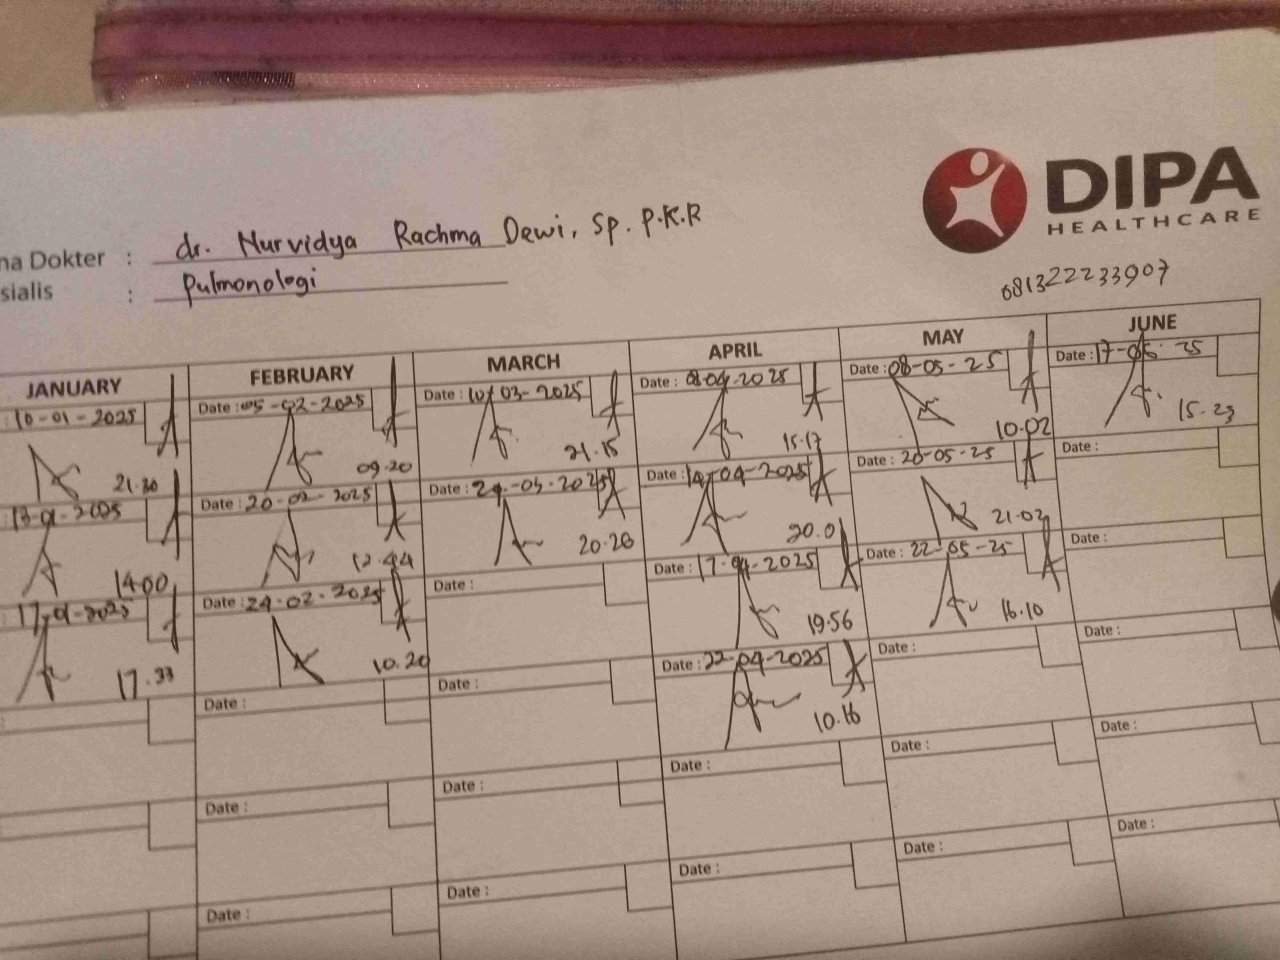 DIPA
HEALTHCARE
na Dokter : dr. Nurvidya Rachma Dewi, Sp. P.K.R
sialis : Pulmonologi
081322233907
JANUARY FEBRUARY MARCH APRIL MAY JUNE
: 10-01-2025 Date : 05-02-2025 Date : 10/03-2025 Date : 08-04-2025 Date : 08-05-25 Date : 17-06-25
21.20 09.20 21.15 15.17 10.02 15.23
: 13-01-2025 Date : 20-02-2025 Date : 24-03-2025 Date : 14-04-2025 Date : 20-05-25 Date :
14.00 12.44 20.20 20.01 21.02
17-01-2025 Date : 24-02-2025 Date : Date : 17-04-2025 Date : 22-05-25 Date :
17.33 10.20 19.56 16.10
: Date : Date : Date : 22-04-2025 Date : Date :
10.16
Date : Date : Date : Date : Date :
Date : Date : Date : Date : Date :